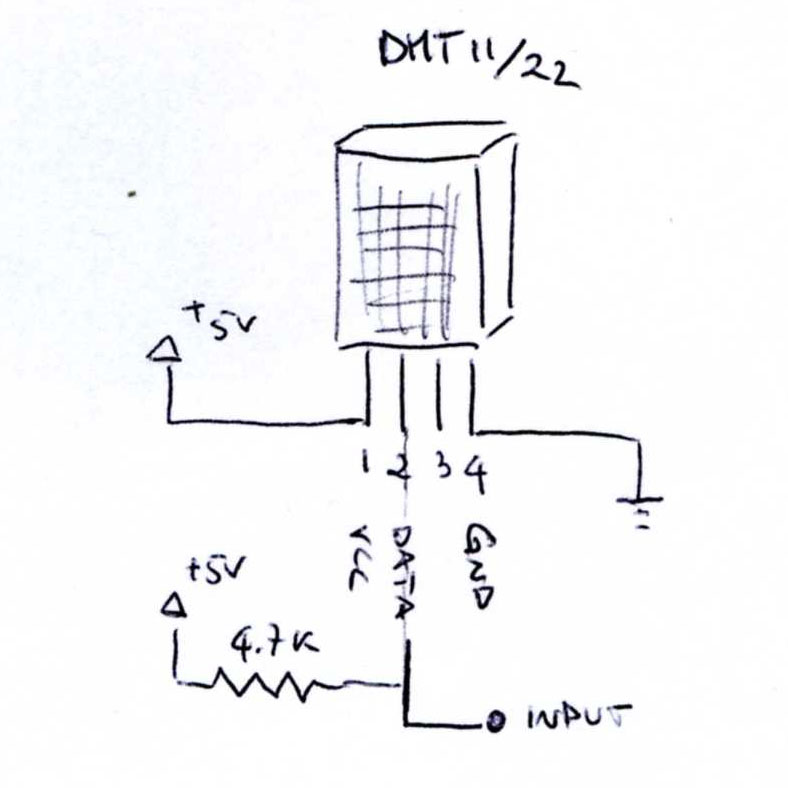 DHT11/22
+5V
1 2 3 4
VCC
DATA
GND
+5V
4.7K
INPUT